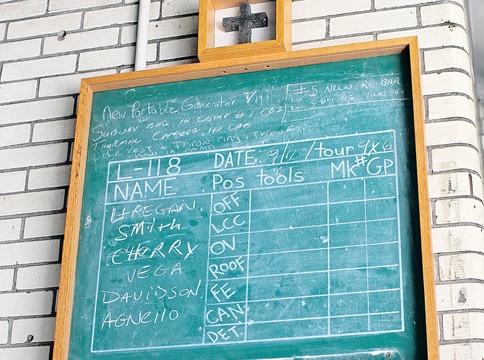 New Portable Generator
#5 New Re BAR
SUBWAY BAG IN
THERMAL CAMERA IN CAB
Life Vest & Throw ring
L-118 DATE: 9/11 /tour 9x6
NAME Pos tools Mk# GP
Lt REGAN OFF
Smith LCC
CHERRY OV
VEGA ROOF
DAVIDSON FE
AGNELLO CAN
DET.